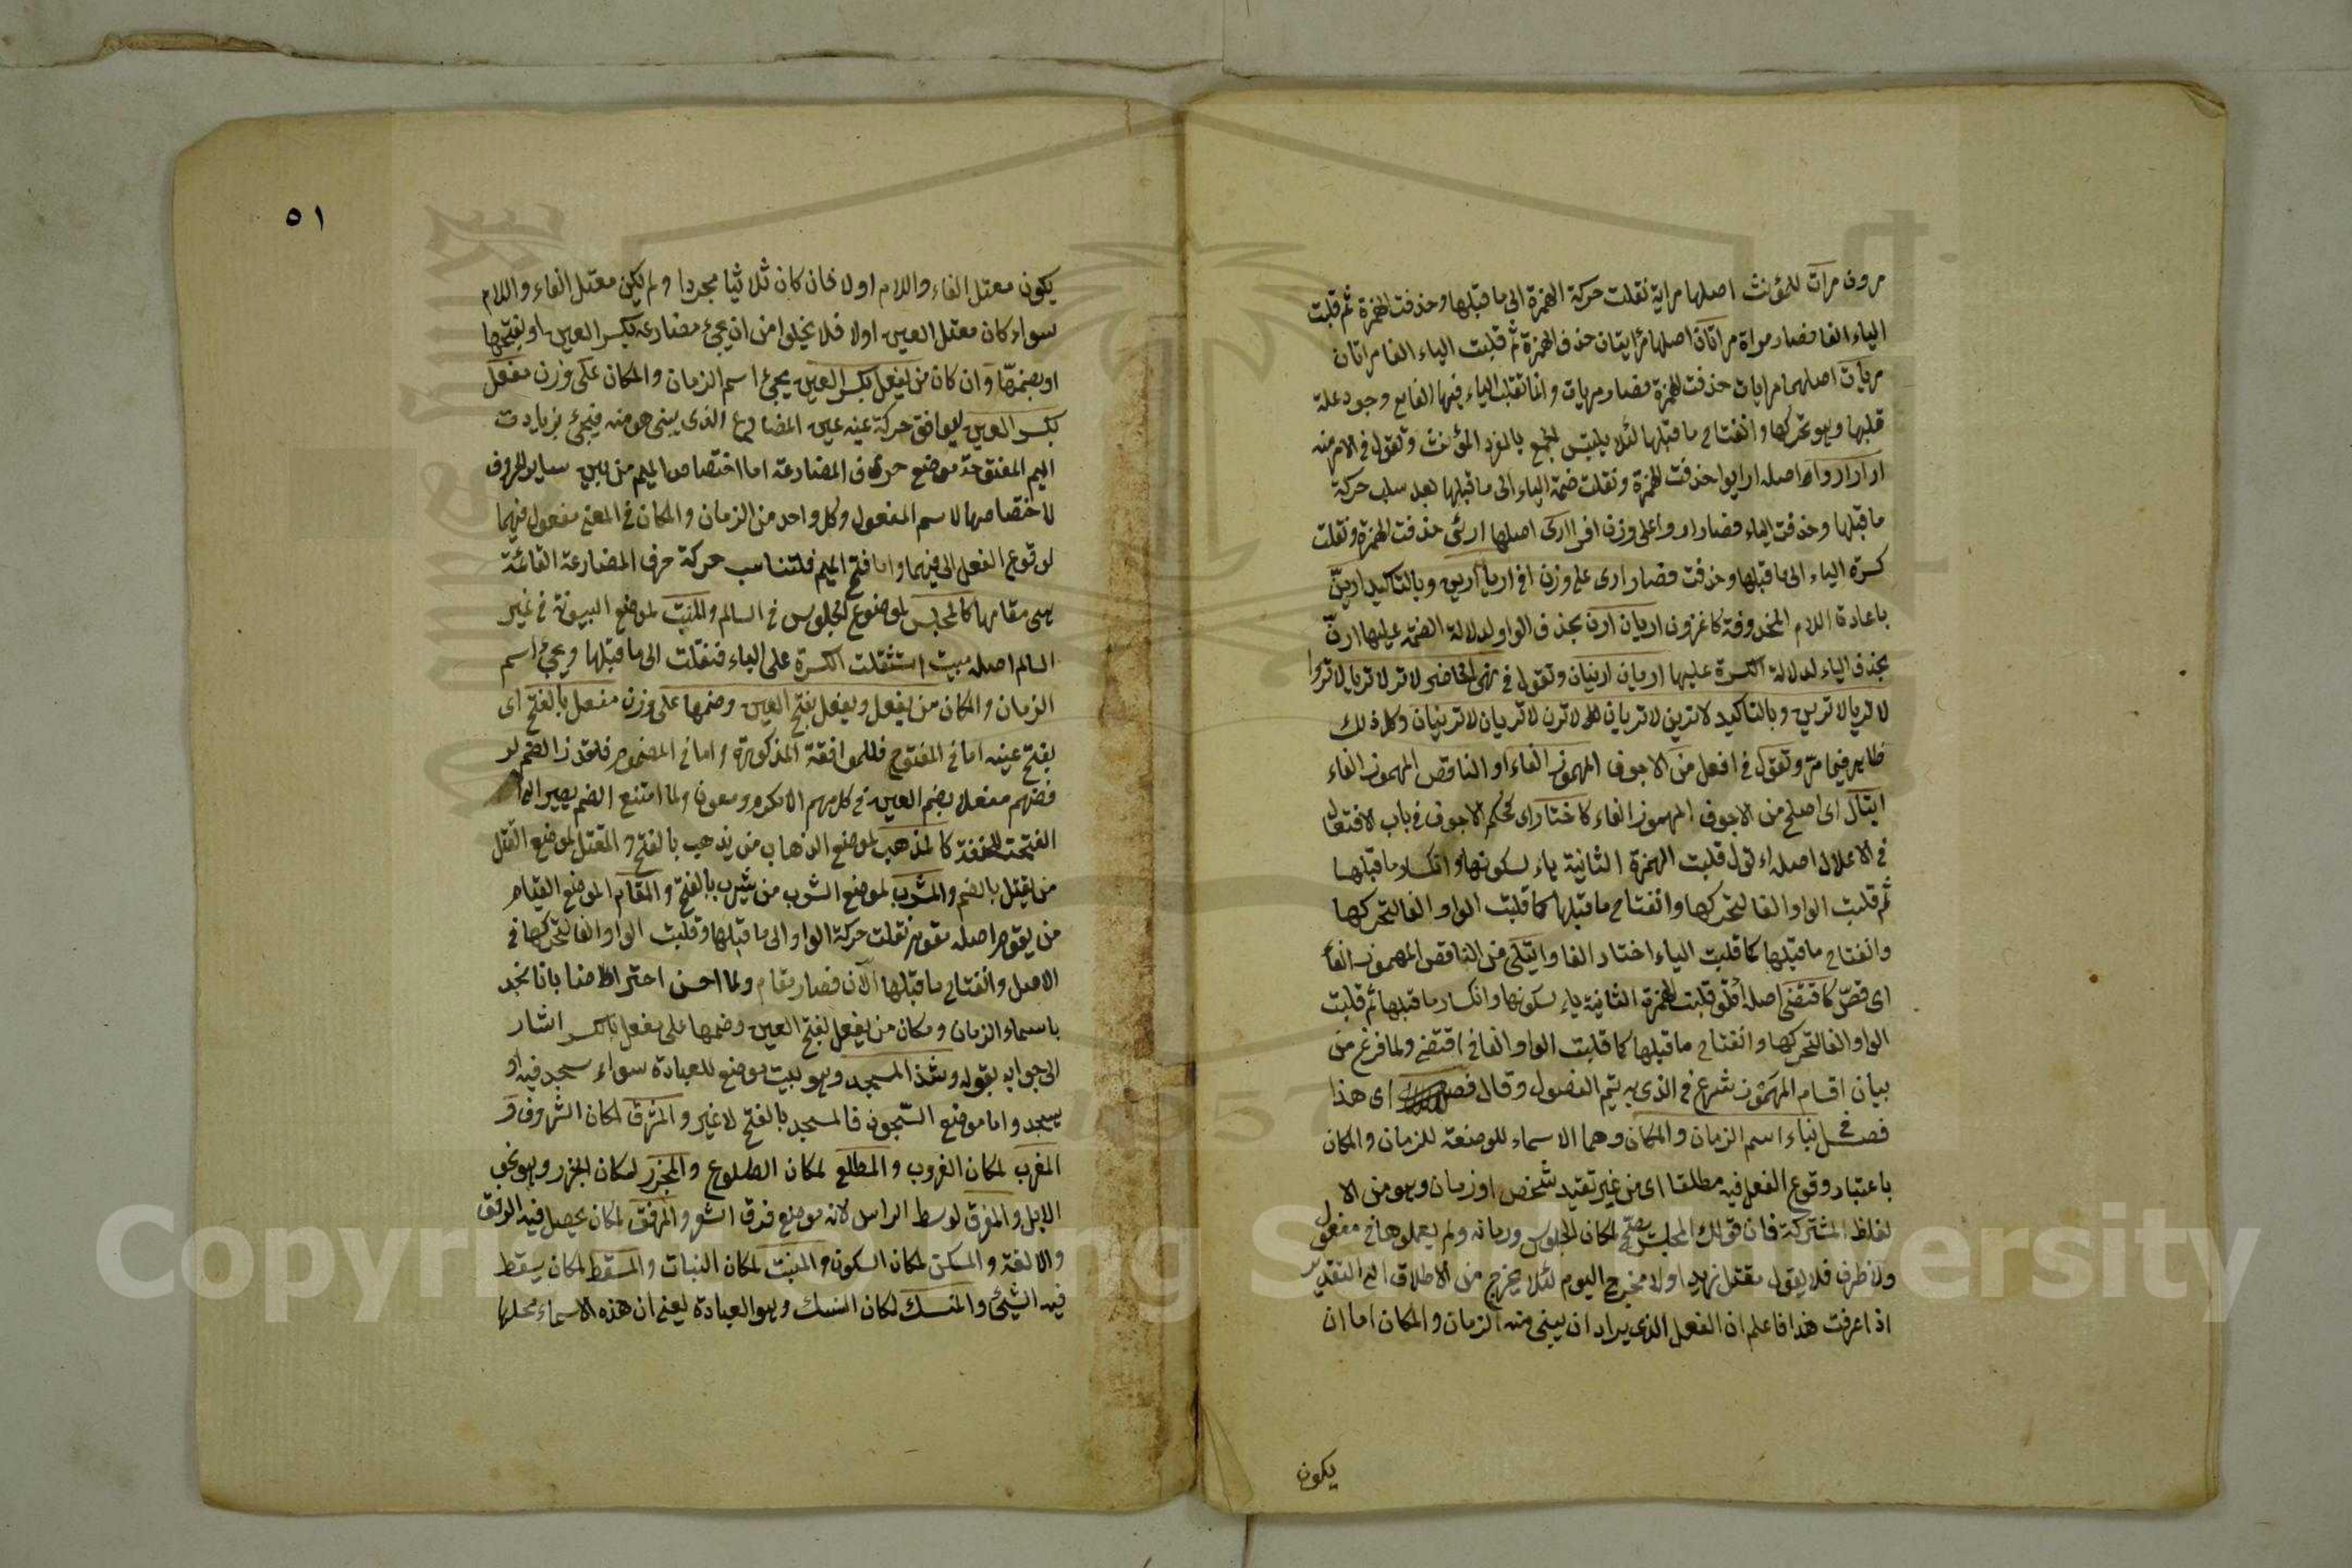 مرون مرات للمؤنث اصلها مراية نقلت حركة الهمزة الى ما قبلها وحذفت الهمزة ثم قلبت
الياء الفا فصار مراة مراتان اصلها مرأيتان حذف الهمزة ثم قلبت الياء الفا مراتان
مريات اصلهما مرايات حذفت الهمزة فصار مريات وانما تقلب الياء فيها الفا مع وجود علة
قلبها وهو تحركها وانفتاح ما قبلها لئلا يلتبس الجمع بالمفرد المؤنث وتقول في الامر منه
ار ارا روا اصله ارايوا حذفت الهمزة ونقلت ضمة الياء الى ما قبلها بعد سلب حركة
ما قبلها وحذفت الياء فصار اروا على وزن افوا ارى اصلها ارئى حذفت الهمزة ونقلت
كسرة الياء الى ما قبلها وحذفت فصار ارى على وزن افى اريا ارين وبالتاكيد ارينّ
باعادة اللام المحذوفة كاغزون اريان ارن بحذف الواو لدلالة الضمة عليها ارنّ
بحذف الياء لدلالة الكسرة عليها اريان ارينان وتقول في نهى الحاضر لا تر لا تريا لا تروا
لا تريا لا ترين وبالتاكيد لا ترين لا تريان لا ترن لا تريان لا ترينان وكل ذلك
ظاهر فيما مر وتقول في افعل من الاجوف المهموز الفاء او الناقص المهموز الفاء
ايتال اى اصلح من الاجوف المهموز الفاء كاختار اى كحكم الاجوف في باب الافتعال
في الاعلال اصله اءتول قلبت الهمزة الثانية ياء لسكونها وانكسار ما قبلها
ثم قلبت الواو الفا لتحركها وانفتاح ما قبلها كما قلبت الواو الفا لتحركها
وانفتاح ما قبلها كما قلبت الياء اختار الفا وايتلى من الناقص المهموز الفاء
اى قصّر كاقتضى اصله قلبت الهمزة الثانية ياء لسكونها وانكسار ما قبلها ثم قلبت
الواو الفا لتحركها وانفتاح ما قبلها كما قلبت الواو الفا في اقتضى ولما فرغ من
بيان اقسام المهموز شرع في الذى به يتم الفصول وقال فصل اى هذا
فصل في بناء اسم الزمان والمكان وهما الاسماء الموضعة للزمان والمكان
باعتبار وقوع الفعل فيه مطلقا اى من غير تقيد شخص او زمان وهو من الا
لفاظ المشتركة فان قولك المجلس يصلح لمكان الجلوس وزمانه ولم يعملوها في مفعول
ولا ظرف فلا يقول مقتل زيدا ولا مخرج اليوم لئلا يخرج من الاطلاق الى التقدير
اذا عرفت هذا فاعلم ان الفعل الذى يراد ان يبنى منه الزمان والمكان اما ان
يكون
٥١
يكون معتل الفاء واللام اولا فان كان ثلاثيا مجردا ولم يكن معتل الفاء واللام
سواء كان معتل العين اولا فلا يخلوا من ان يجئ مضارعه بكسر العين او بفتحها
او بضمها وان كان من يفعل بكسر العين يجئ اسم الزمان والمكان على وزن مفعل
بكسر العين ليوافق حركة عينه عين المضارع الذى يبنى هو منه فيجئ بزيادت
الميم المفتوحة موضع حرف المضارعة اما اختصاص الميم من بين ساير الحروف
لاختصاصها لاسم المفعول وكل واحد من الزمان والمكان في المعنى مفعول فيهما
لوقوع الفعل الى فيهما واما فتح الميم فلتناسب حركة حرف المضارعة القائمة
هى مقامها كالمجلس لموضوع الجلوس في السالم والمبيت لموضع البيوتة في غير
السالم اصله مبيت استثقلت الكسرة على الياء فنقلت الى ما قبلها ويجئ اسم
الزمان والمكان من يفعل ويفعل بفتح العين وضمها على وزن مفعل بالفتح اى
بفتح عينه اما في المفتوح فللموافقة المذكورة واما في المضموم فلتعذر الضم لر
فضهم مفعلا بضم العين في كلامهم الا مكرم ومعون ولما امتنع الضم يصير الى
الفتحة للخفة كالمذهب لموضع الذهاب من يذهب بالفتح والمقتل لموضع القتل
من يقتل بالضم والمشرب لموضع الشرب من يشرب بالفتح والمقام لموضع القيام
من يقوم اصله مقوم نقلت حركة الواو الى ما قبلها وقلبت الواو الفا لتحركها في
الاصل وانفتاح ما قبلها الآن فصار مقام ولما احسن اعتراضا بانا نجد
باسماء الزمان ومكان من يفعل بفتح العين وضمها على مفعل بالكسر اشار
الى جوابه بقوله وشذ المسجد وهو بيت موضع للعبادة سواء سجد فيه او
يسجد واما موضع السجون فالمسجد بالفتح لا غير والمشرق لمكان الشروق و
المغرب لمكان الغروب والمطلع لمكان الطلوع والمجزر لمكان الجزر وهو نحر
الابل والمفرق لوسط الراس لانه موضع فرق الشعر والمرفق لمكان يحصل فيه الرفق
والالفة والمسكن لمكان السكون والمنبت لمكان النبات والمسقط لمكان يسقط
فيه الشيئ والمنسك لمكان النسك وهو العبادة يعنى ان هذه الاسماء محلها
Copyright © King Saud University